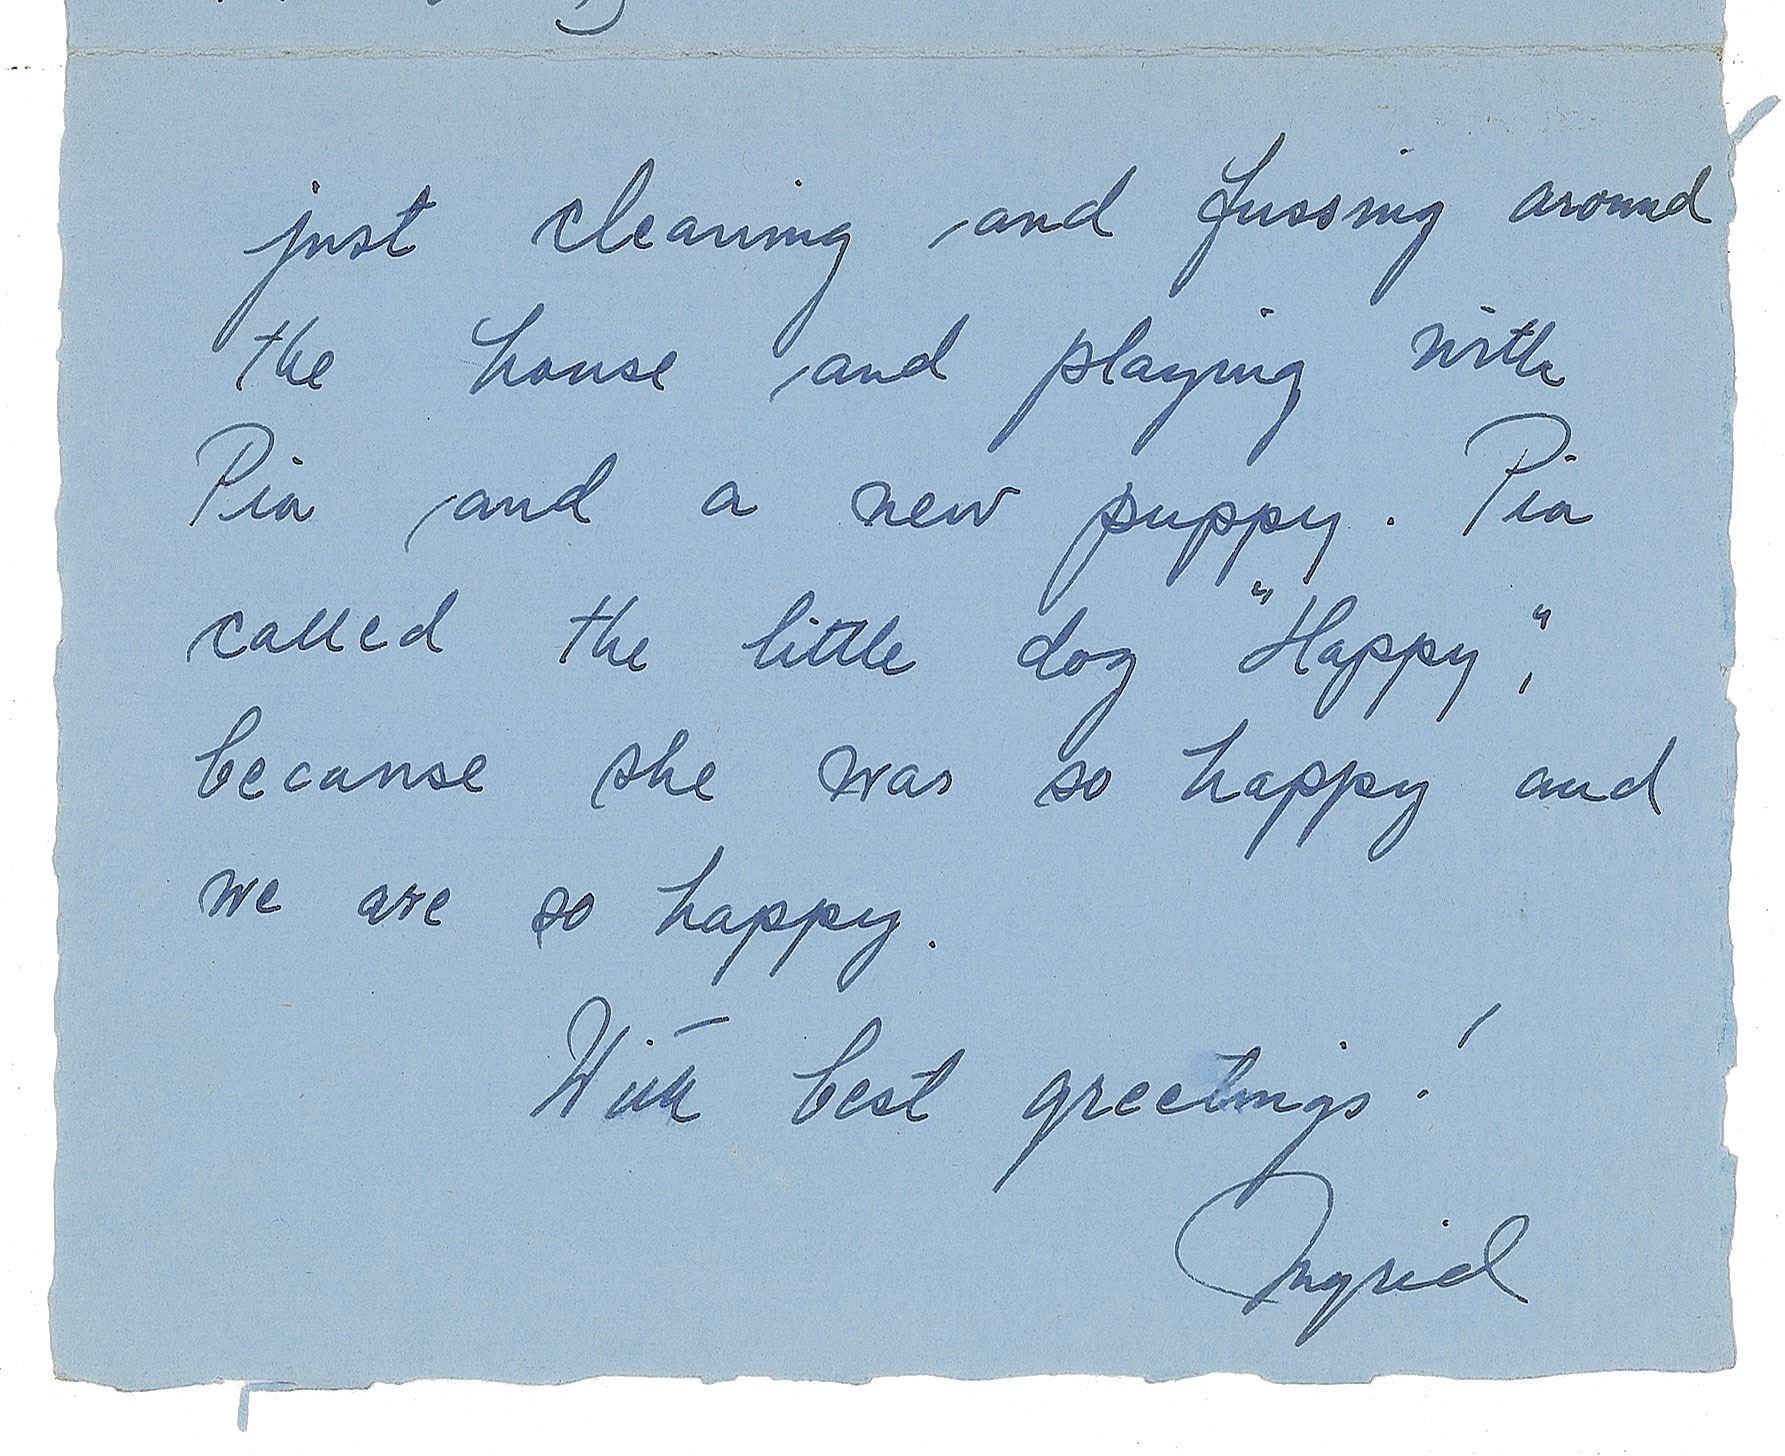 just cleaning and fussing around
the house and playing with
Pia and a new puppy. Pia
called the little dog "Happy",
because she was so happy and
we are so happy.
With best greetings!
Ingrid